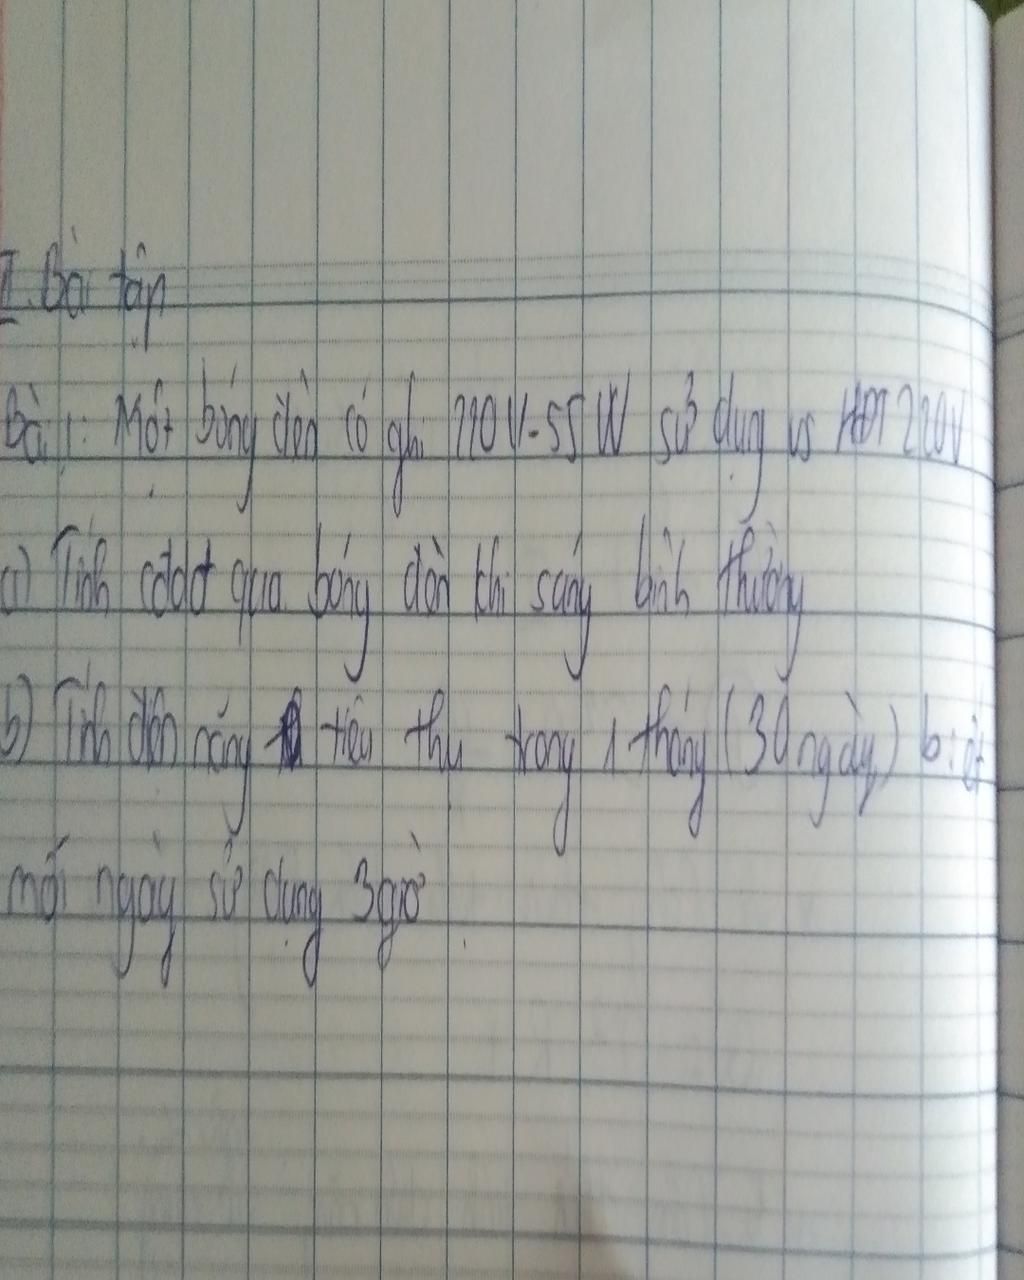 I. Bài tập
Bài 1: Một bóng đèn có ghi 220V-55W sử dụng vs HĐT 220V
a) Tính cđdđ qua bóng đèn khi sáng bình thường
b) Tính điện năng tiêu thụ trong 1 tháng (30 ngày) biết
mỗi ngày sử dụng 3giờ